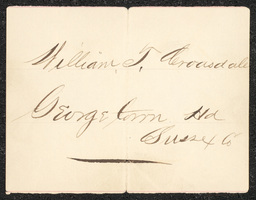 William T. Croasdale
Georgetown Hd
Sussex Co